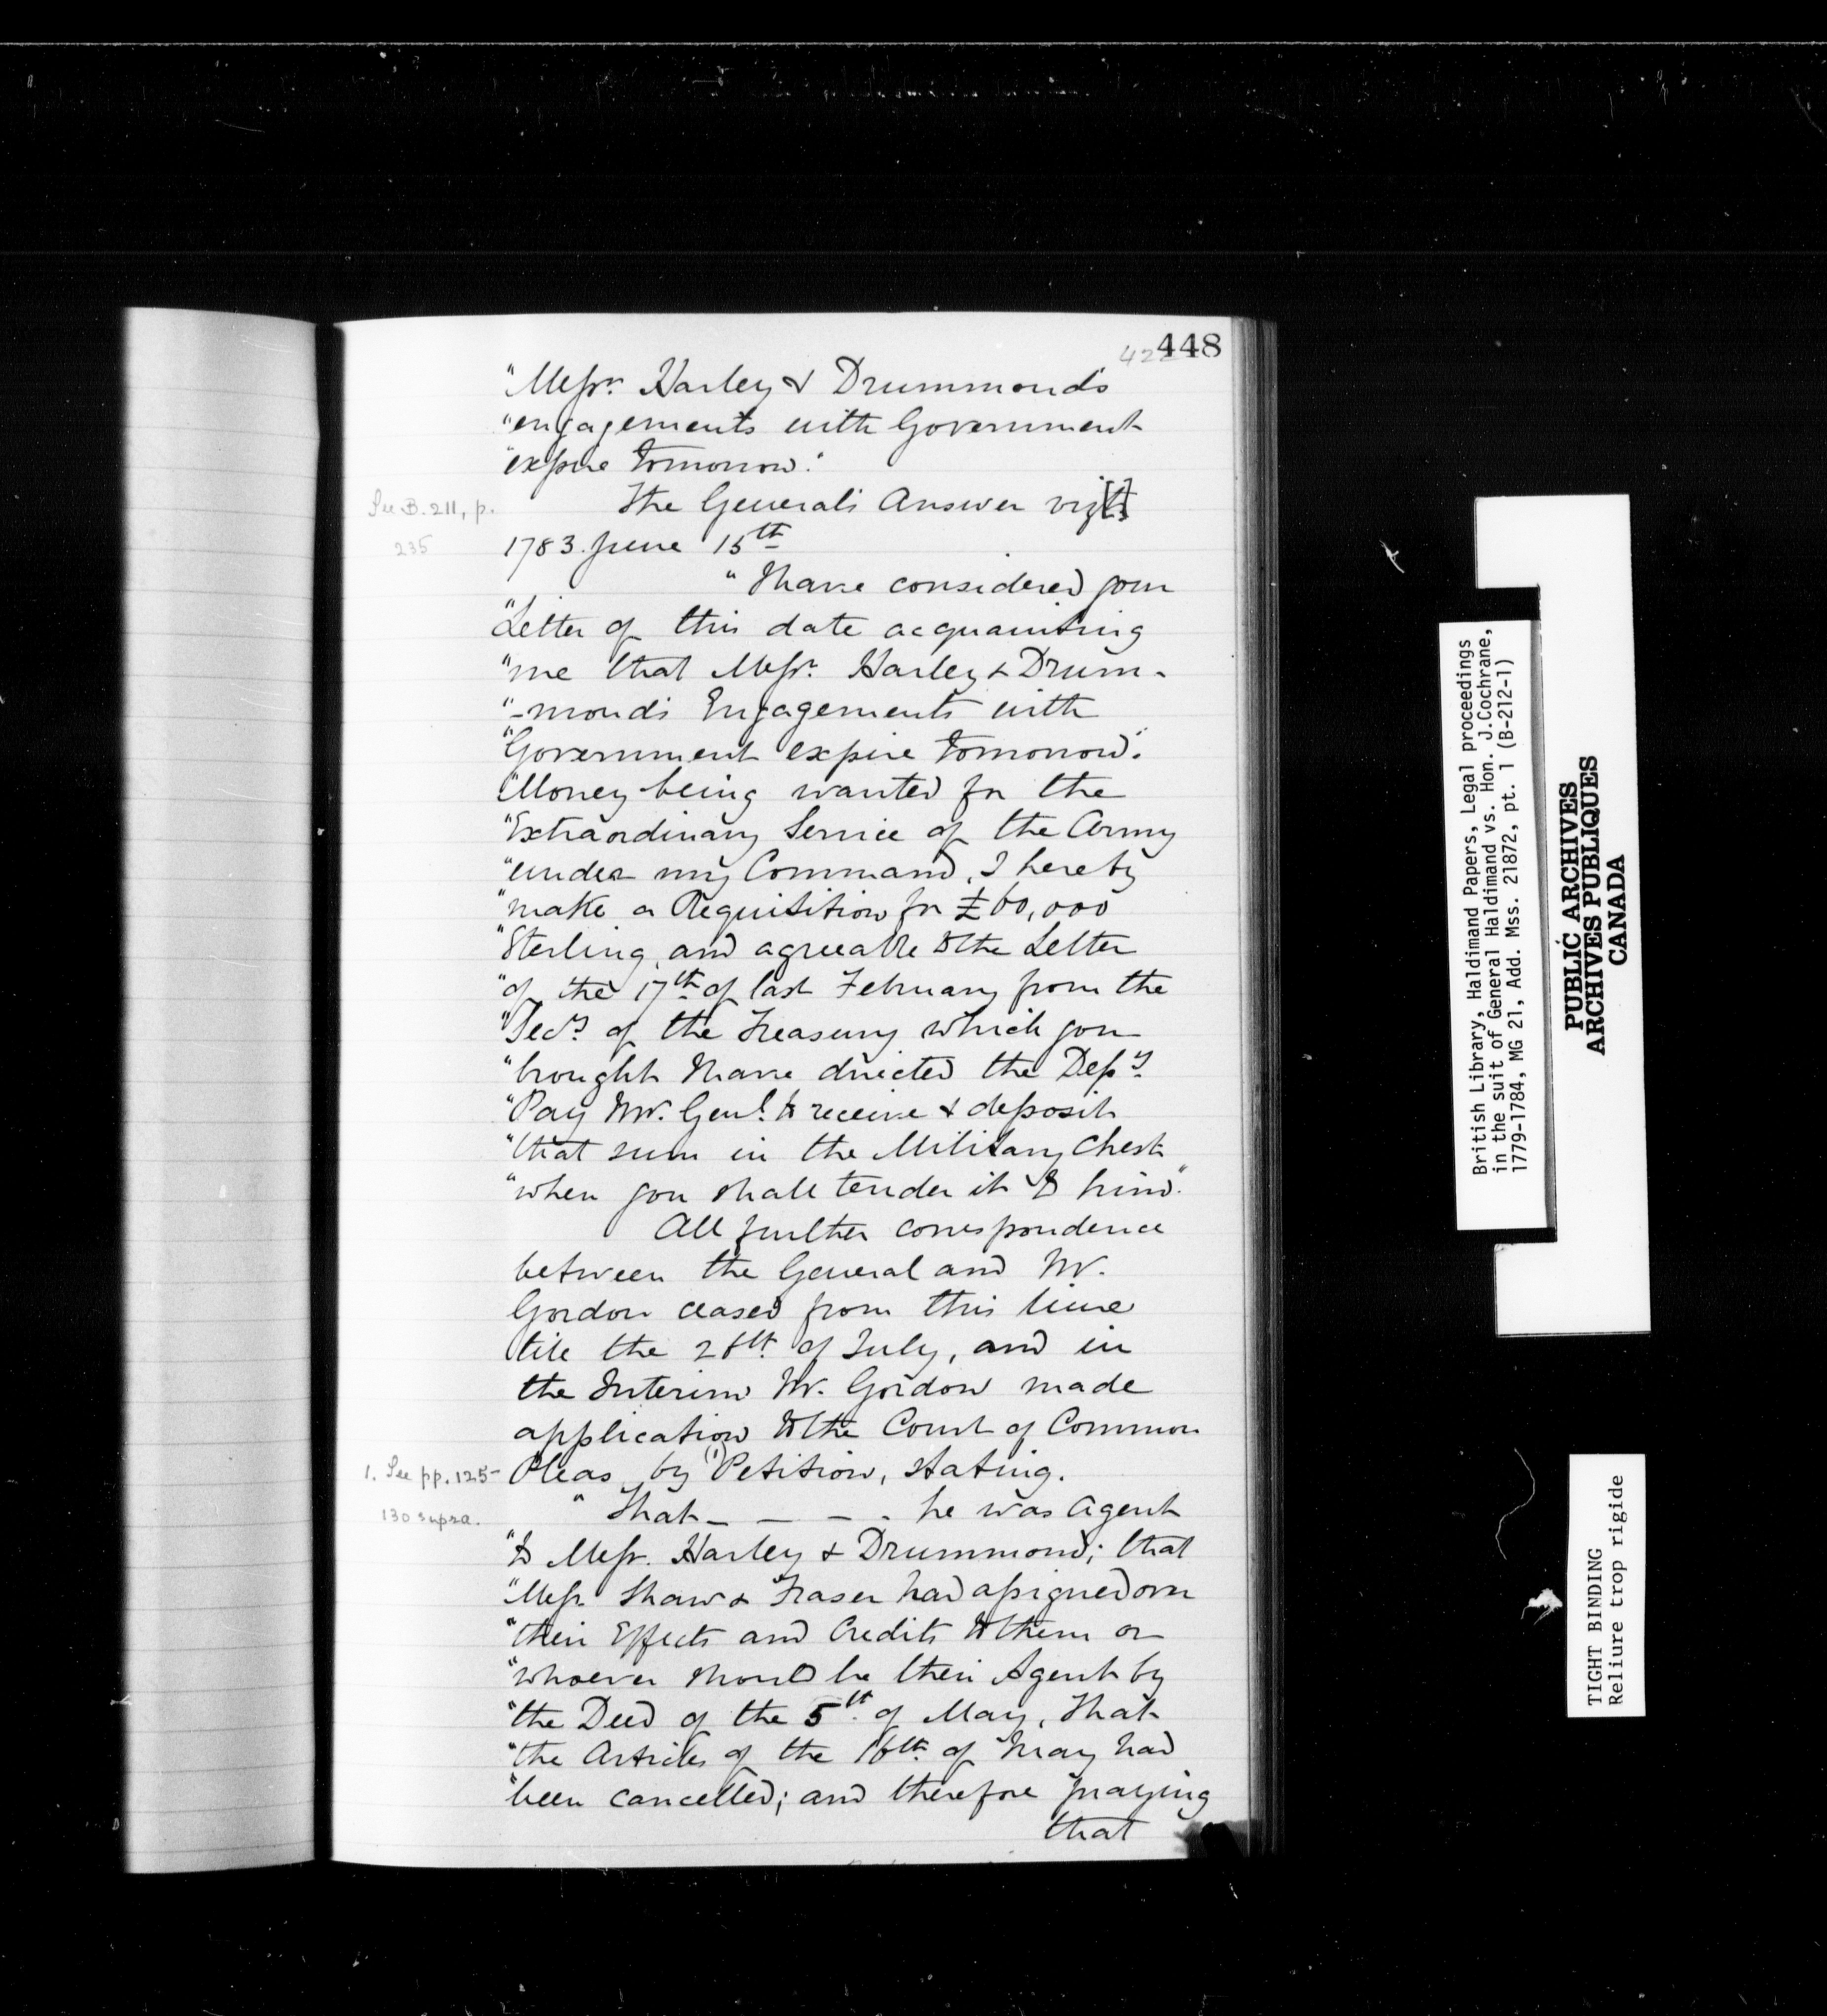 448
"Messrs. Harley & Drummond's
"engagements with Government
"expire tomorrow."
See B. 211, p.
235
The General's Answer vizt.
1783. June 15th
"I have considered your
"Letter of this date acquainting
"me that Messr. Harley & Drum-
"-mond's Engagements with
"Government expire tomorrow".
"Money being wanted for the
"Extraordinary Service of the Army
"under my Command, I hereby
"make a Requisition for £60,000
"Sterling, and agreeable to the Letter
"of the 17th of last February from the
"Secy. of the Treasury which you
"brought I have directed the Depy.
"Pay Mr. Genl. to receive & deposit
"that sum in the Military Chest
"when you shall tender it to him."
All further correspondence
between the General and Mr.
Gordon ceased from this time
till the 26th. of July, and in
the Interim Mr. Gordon made
application to the Court of Common
1. See pp. 125-
130 supra.
Pleas by (1) Petition, stating.
"That – – – – he was Agent
"to Messr. Harley & Drummond; that
"Messr. Shaw & Fraser had assigned over
"their Effects and Credits to them or
"whoever should be their Agent by
"the Deed of the 5th. of May, That
"the Articles of the 16th. of May had
"been cancelled; and therefore praying
that
British Library, Haldimand Papers, Legal proceedings
in the suit of General Haldimand vs. Hon. J.Cochrane,
1779-1784, MG 21, Add. Mss. 21872, pt. 1 (B-212-1)
PUBLIC ARCHIVES
ARCHIVES PUBLIQUES
CANADA
TIGHT BINDING
Reliure trop rigide